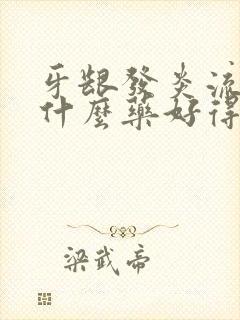 牙龈發炎流
什麼藥好得
梁武帝